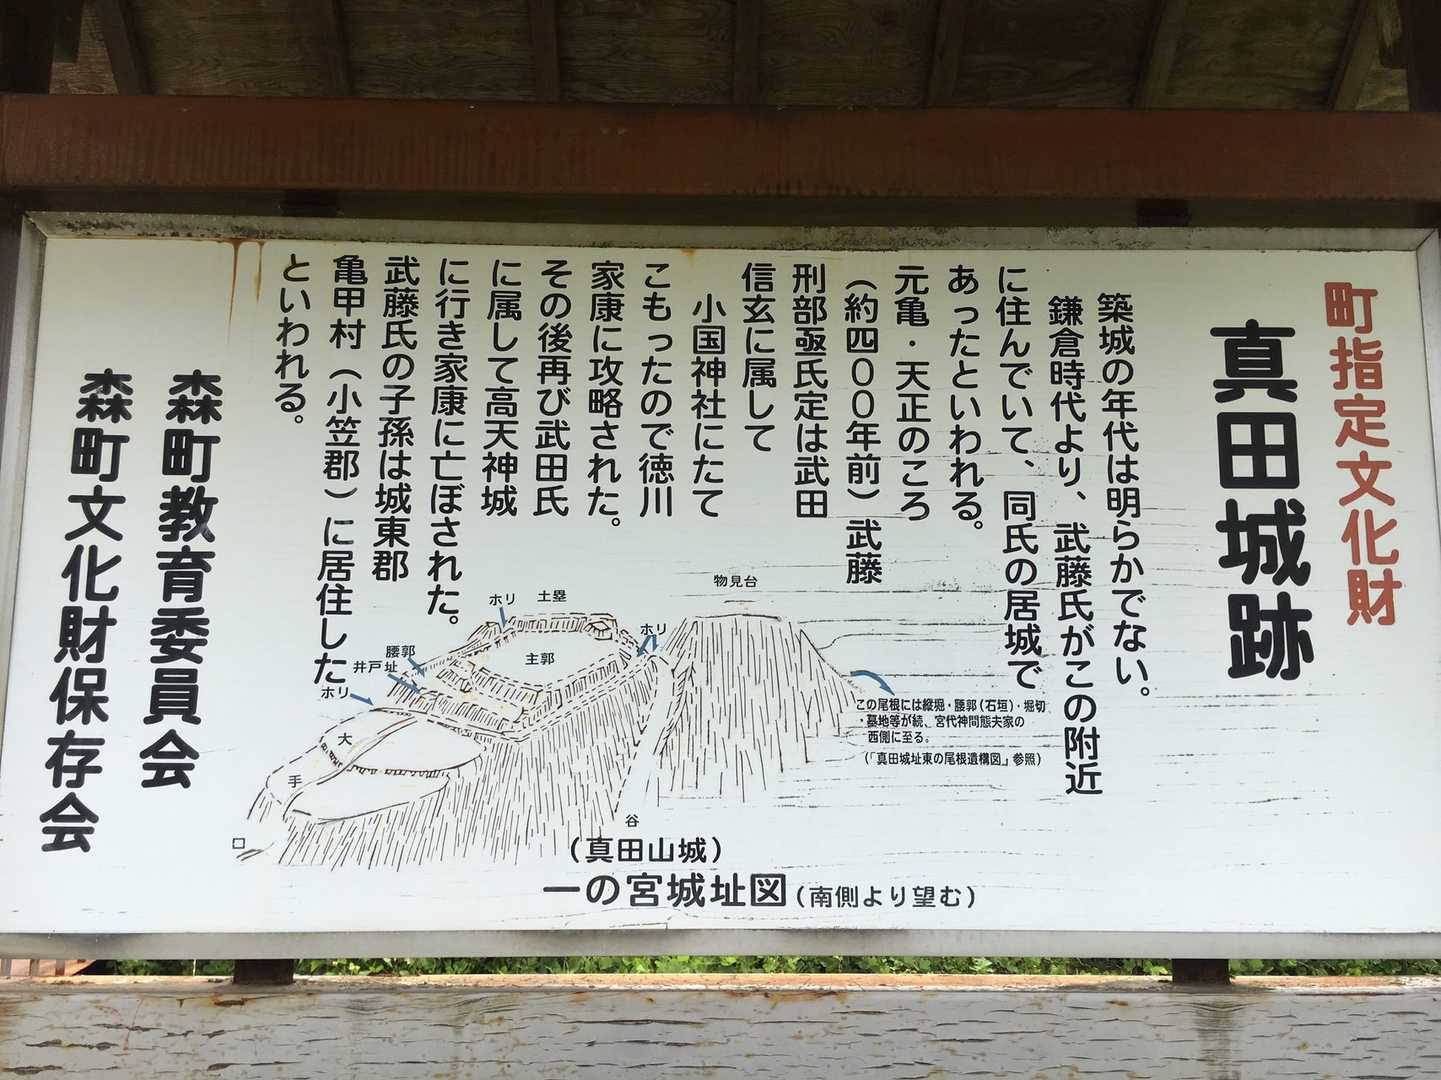 町指定文化財
真田城跡
築城の年代は明らかでない。
鎌倉時代より、武藤氏がこの附近
に住んでいて、同氏の居城で
あったといわれる。
元亀・天正のころ
(約四00年前)武藤
刑部亟氏定は武田
信玄に属して
小国神社にたて
こもったので徳川
家康に攻略された。
その後再び武田氏
に属して高天神城
に行き家康に亡ぼされた。
武藤氏の子孫は城東郡
亀甲村(小笠郡)に居住した
といわれる。
森町教育委員会
森町文化財保存会
物見台
土塁
ホリ
ホリ
主郭
腰郭
井戸址
ホリ
大
手
口
谷
この尾根には縦堀・腰郭(石垣)・堀切
・墓地等が続、宮代神問態夫家の
西側に至る。
(「真田城址東の尾根遺構図」参照)
(真田山城)
一の宮城址図(南側より望む)